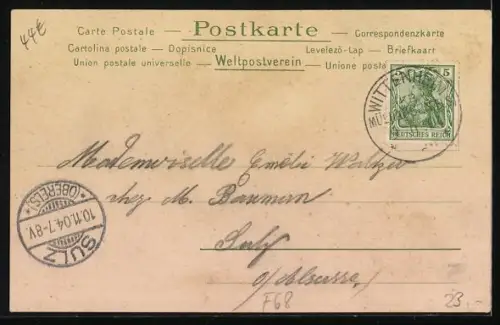 44€
Carte Postale — Postkarte — Correspondenzkarte
Cartolina postale — Dopisnice Levelező-Lap — Briefkaart
Union postale universelle — Weltpostverein — Unione posta
5
WITTENHEIM
DEUTSCHES REICH
Mademoiselle Emélie
chez M. Baumann
Sulz
o/Alsace
SULZ
10.11.04.7-8V.
*(OBERELS)*
F68
23,-